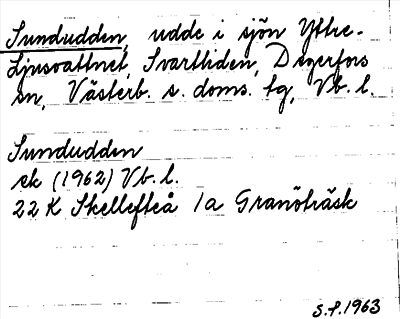 Sundudden, udde i sjön Yttre-
Ljusvattnet, Svartliden, Degerfors
sn, Västerb. s. doms. tg, Vb. l.
Sundudden
ek (1962) Vb. l.
22 K Skellefteå 1a Granöträsk
S.F. 1963